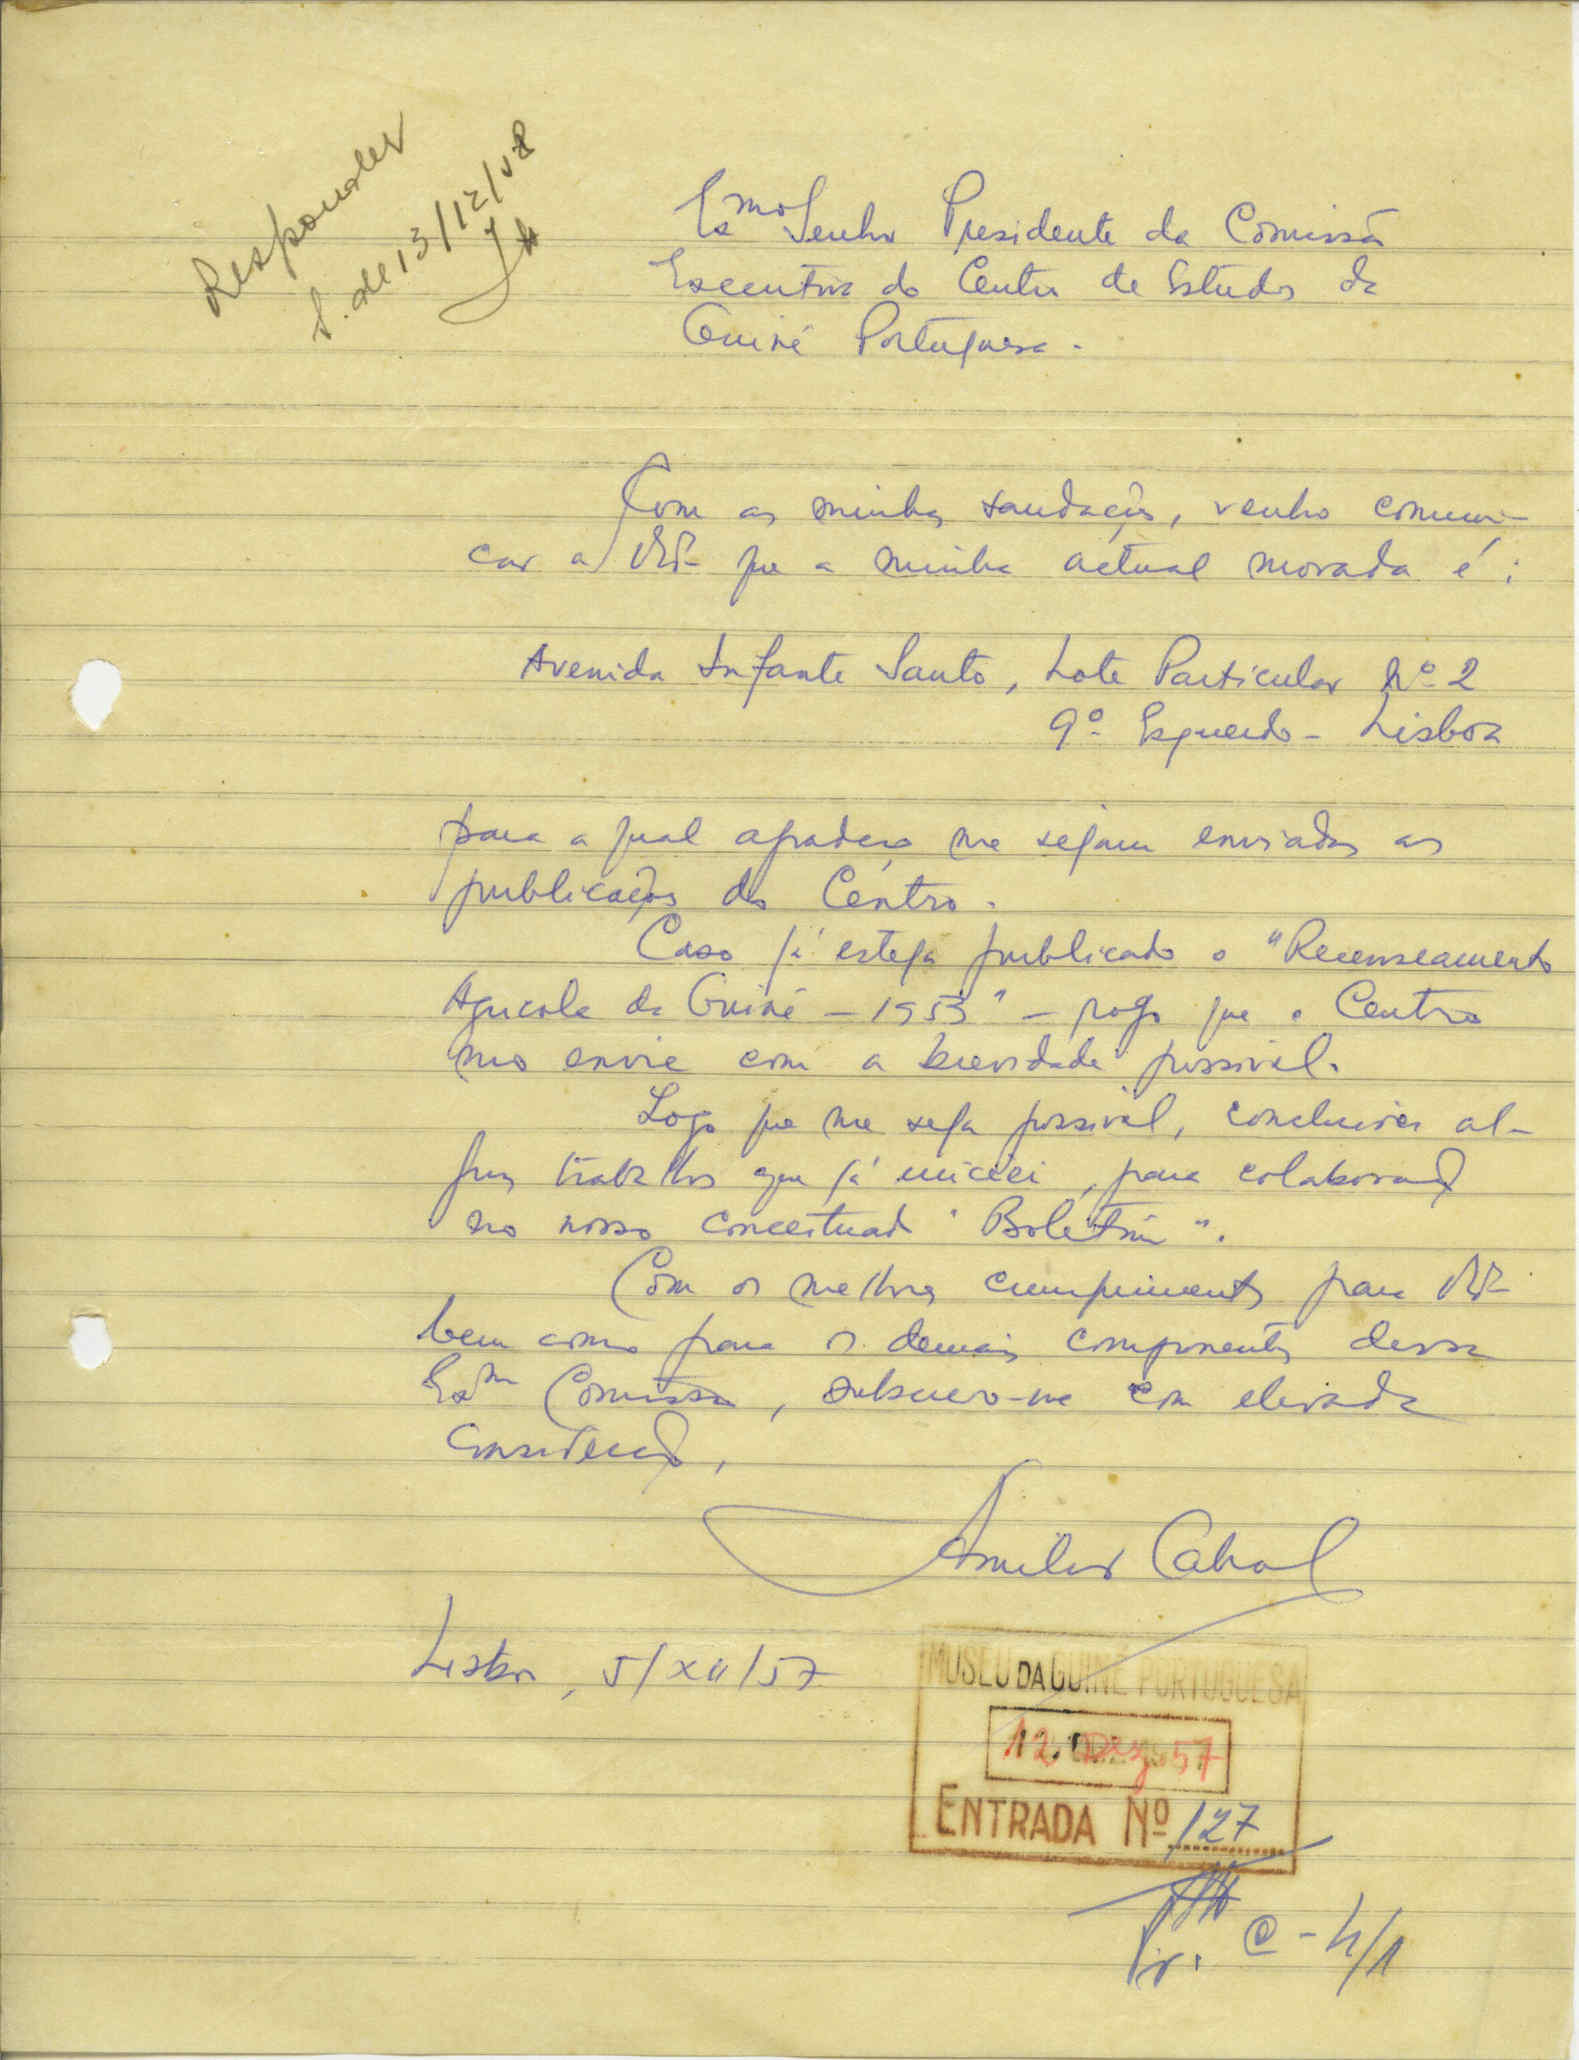 Responder
S. de 13/12/58
Exmo Senhor Presidente da Comissão
Executiva do Centro de Estudos da
Guiné Portuguesa.
Com as minhas saudações, venho comuni-
car a V. Exª que a minha actual morada é:
Avenida Infante Santo, Lote Particular Nº 2
9º Esquerdo - Lisboa
para a qual agradeço me sejam enviadas as
publicações do Centro.
Caso já esteja publicado o "Recenseamento
Agrícola da Guiné - 1953" - rogo que o Centro
mo envie com a brevidade possível.
Logo que me seja possível, concluirei al-
guns trabalhos que já iniciei, para colaboração
no nosso conceituado "Boletim".
Com os melhores cumprimentos para V. Exª
bem como para os demais componentes dessa
Exma Comissão, subscrevo-me com elevada
consideração,
Amílcar Cabral
Lisboa, 5/XII/57
MUSEU DA GUINÉ PORTUGUESA
12 Dez 57
ENTRADA Nº 127
C-4/1